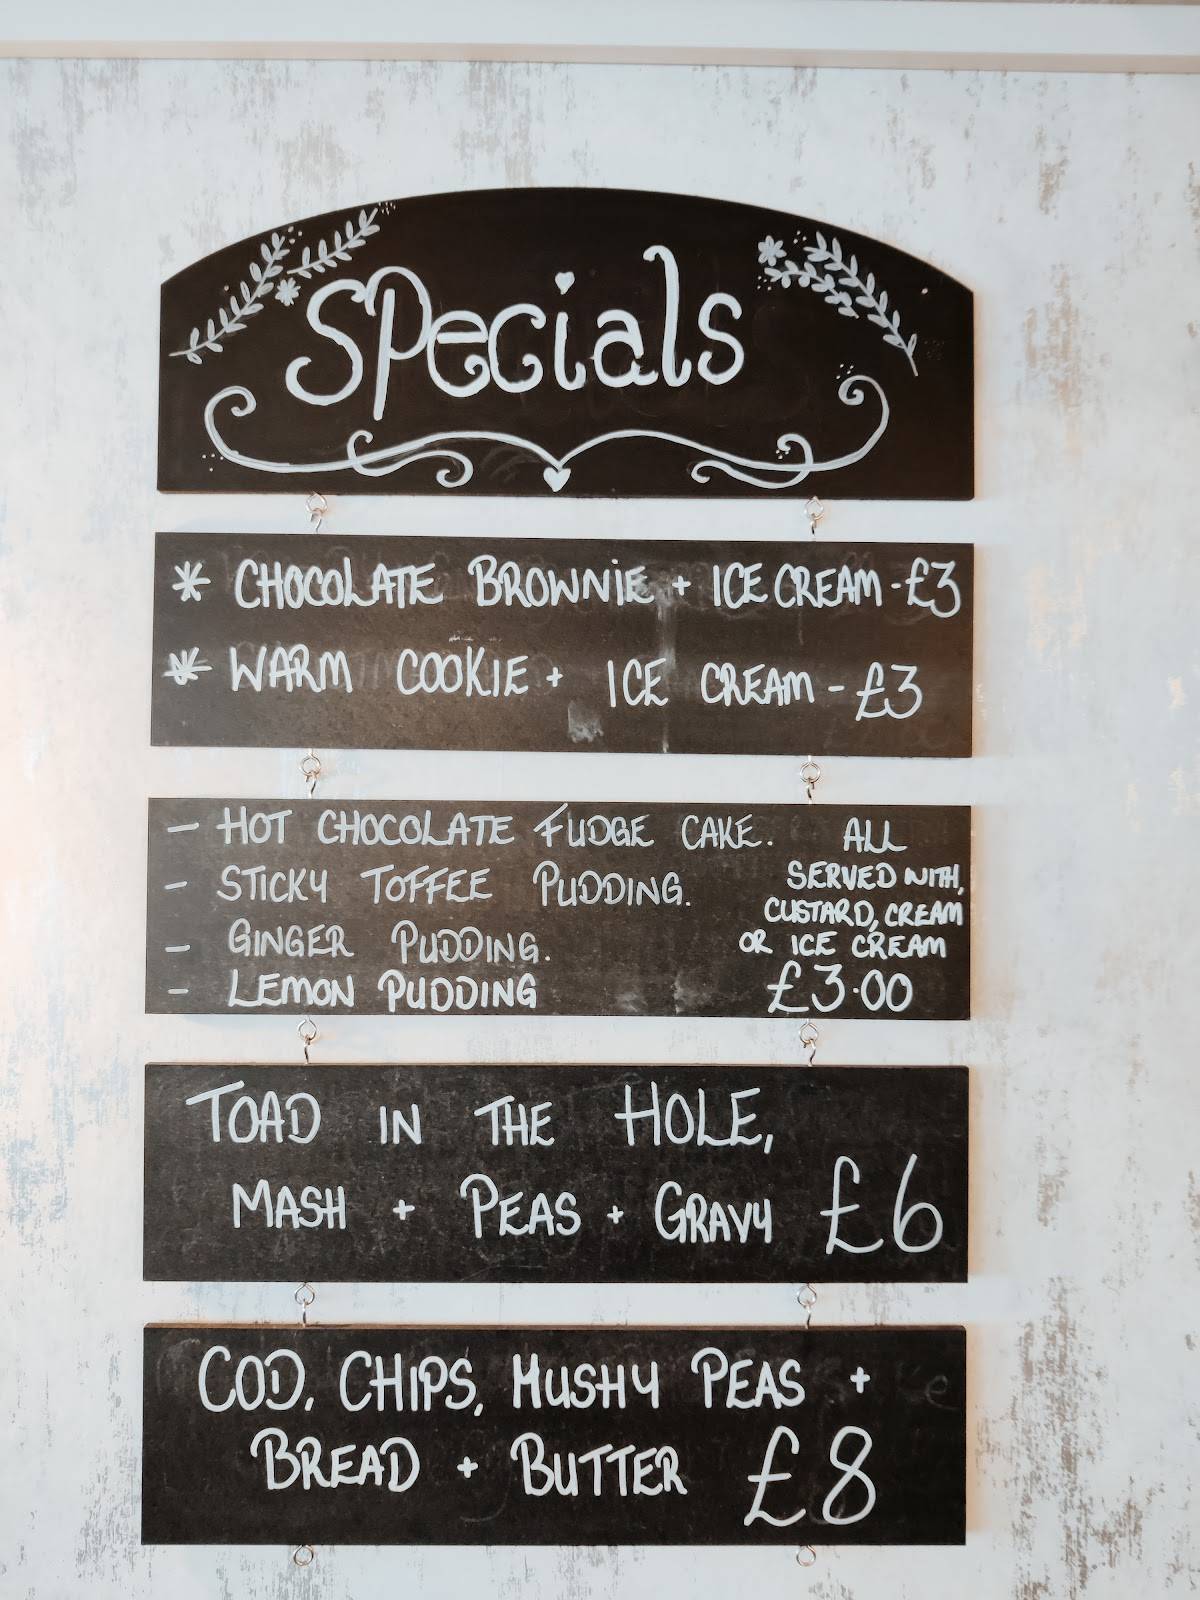 Specials
* CHOCOLATE BROWNIE + ICE CREAM - £3
* WARM COOKIE + ICE CREAM - £3
- HOT CHOCOLATE FUDGE CAKE.
- STICKY TOFFEE PUDDING.
- GINGER PUDDING.
- LEMON PUDDING
ALL
SERVED WITH,
CUSTARD, CREAM
OR ICE CREAM
£3.00
TOAD IN THE HOLE,
MASH + PEAS + GRAVY £6
COD, CHIPS, MUSHY PEAS +
BREAD + BUTTER £8